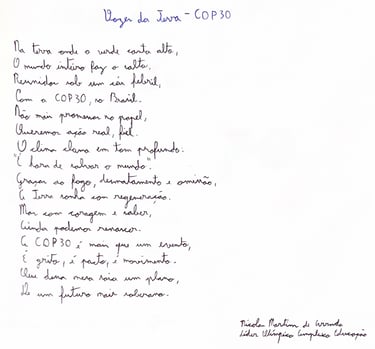 Vozes da Terra - COP30
Na terra onde o verde canta alto,
O mundo inteiro faz o salto,
Reunidos sob um céu febril,
Com a COP30, no Brasil.
Não mais promessas no papel,
Queremos ação real, fiel.
O clima clama em tom profundo:
"É hora de salvar o mundo".
Graças ao fogo, desmatamento e omissão,
A Terra sonha com regeneração.
Mas com coragem e saber,
Ainda podemos renascer.
A COP30 é mais que um evento,
É grito, é pacto, é movimento.
Que dessa mesa saia um plano,
De um futuro mais soberano.
Nicolas Martins de Arruda
Líder Olímpico Complexo Educação